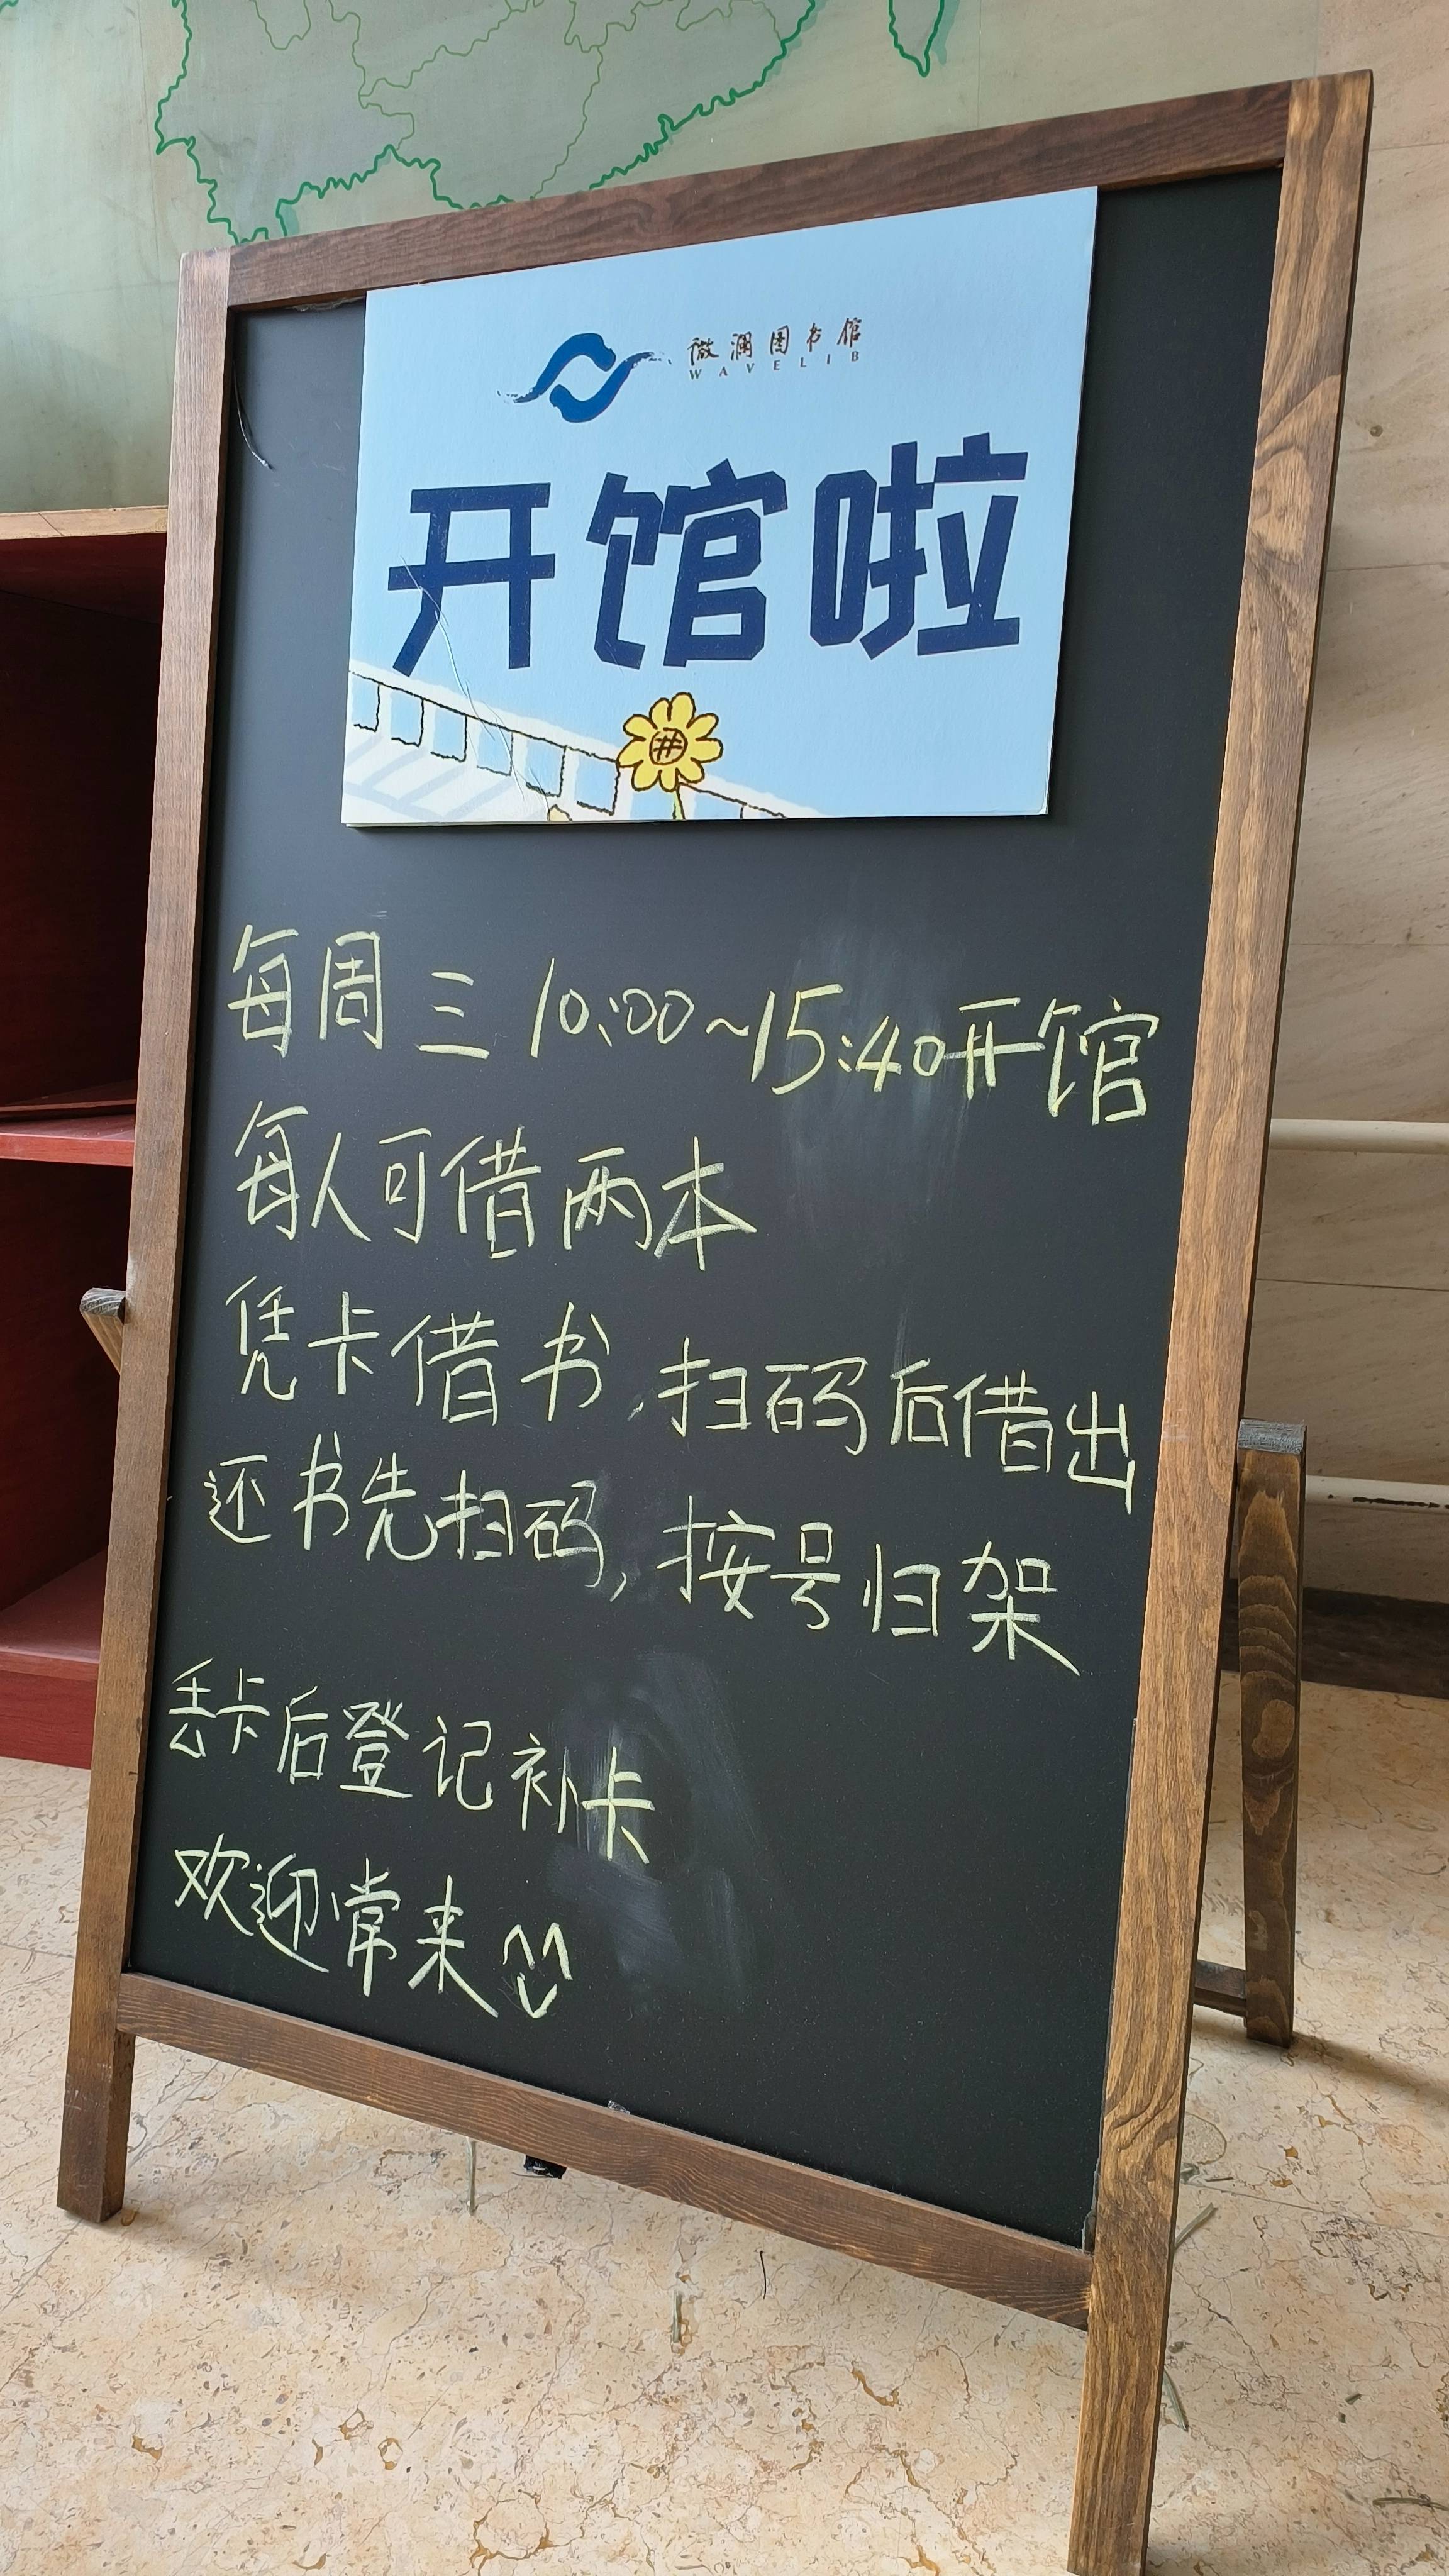 微澜图书馆
WAVELIB
开馆啦
每周三 10:00~15:40开馆
每人可借两本
凭卡借书,扫码后借出
还书先扫码,按号归架
丢卡后登记补卡
欢迎常来